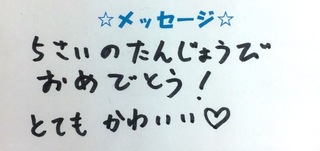 ☆メッセージ☆
5さいのたんじょうび
おめでとう!
とても かわいい♡